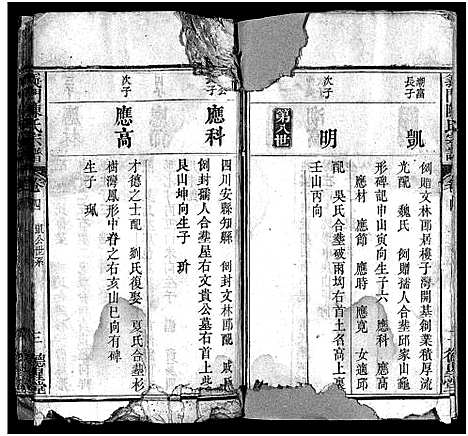 義門陳氏宗譜
湖高
長子
凱
例贈文林郎居樓子灣開基創業積厚流
光配 魏氏 例贈孺人合塟邱家山龜
形碑記申山寅向生子六 應科 應高
應材 應節 應時 應寬 女適邱
第八世
明
配 吳氏合塟破雨坳右首土名高上裏
壬山丙向
義門陳氏宗譜
卷四 凱公世系
三 德星堂
長子
應科
四川安縣知縣 例封文林郎配 戚氏
例封孺人合塟屋右文貴公墓右首上些
艮山坤向生子 玠
次子
應高
才德之士配 劉氏復娶 夏氏合塟杉
樹灣鳳形中脊之右亥山巳向有碑
生子 珮